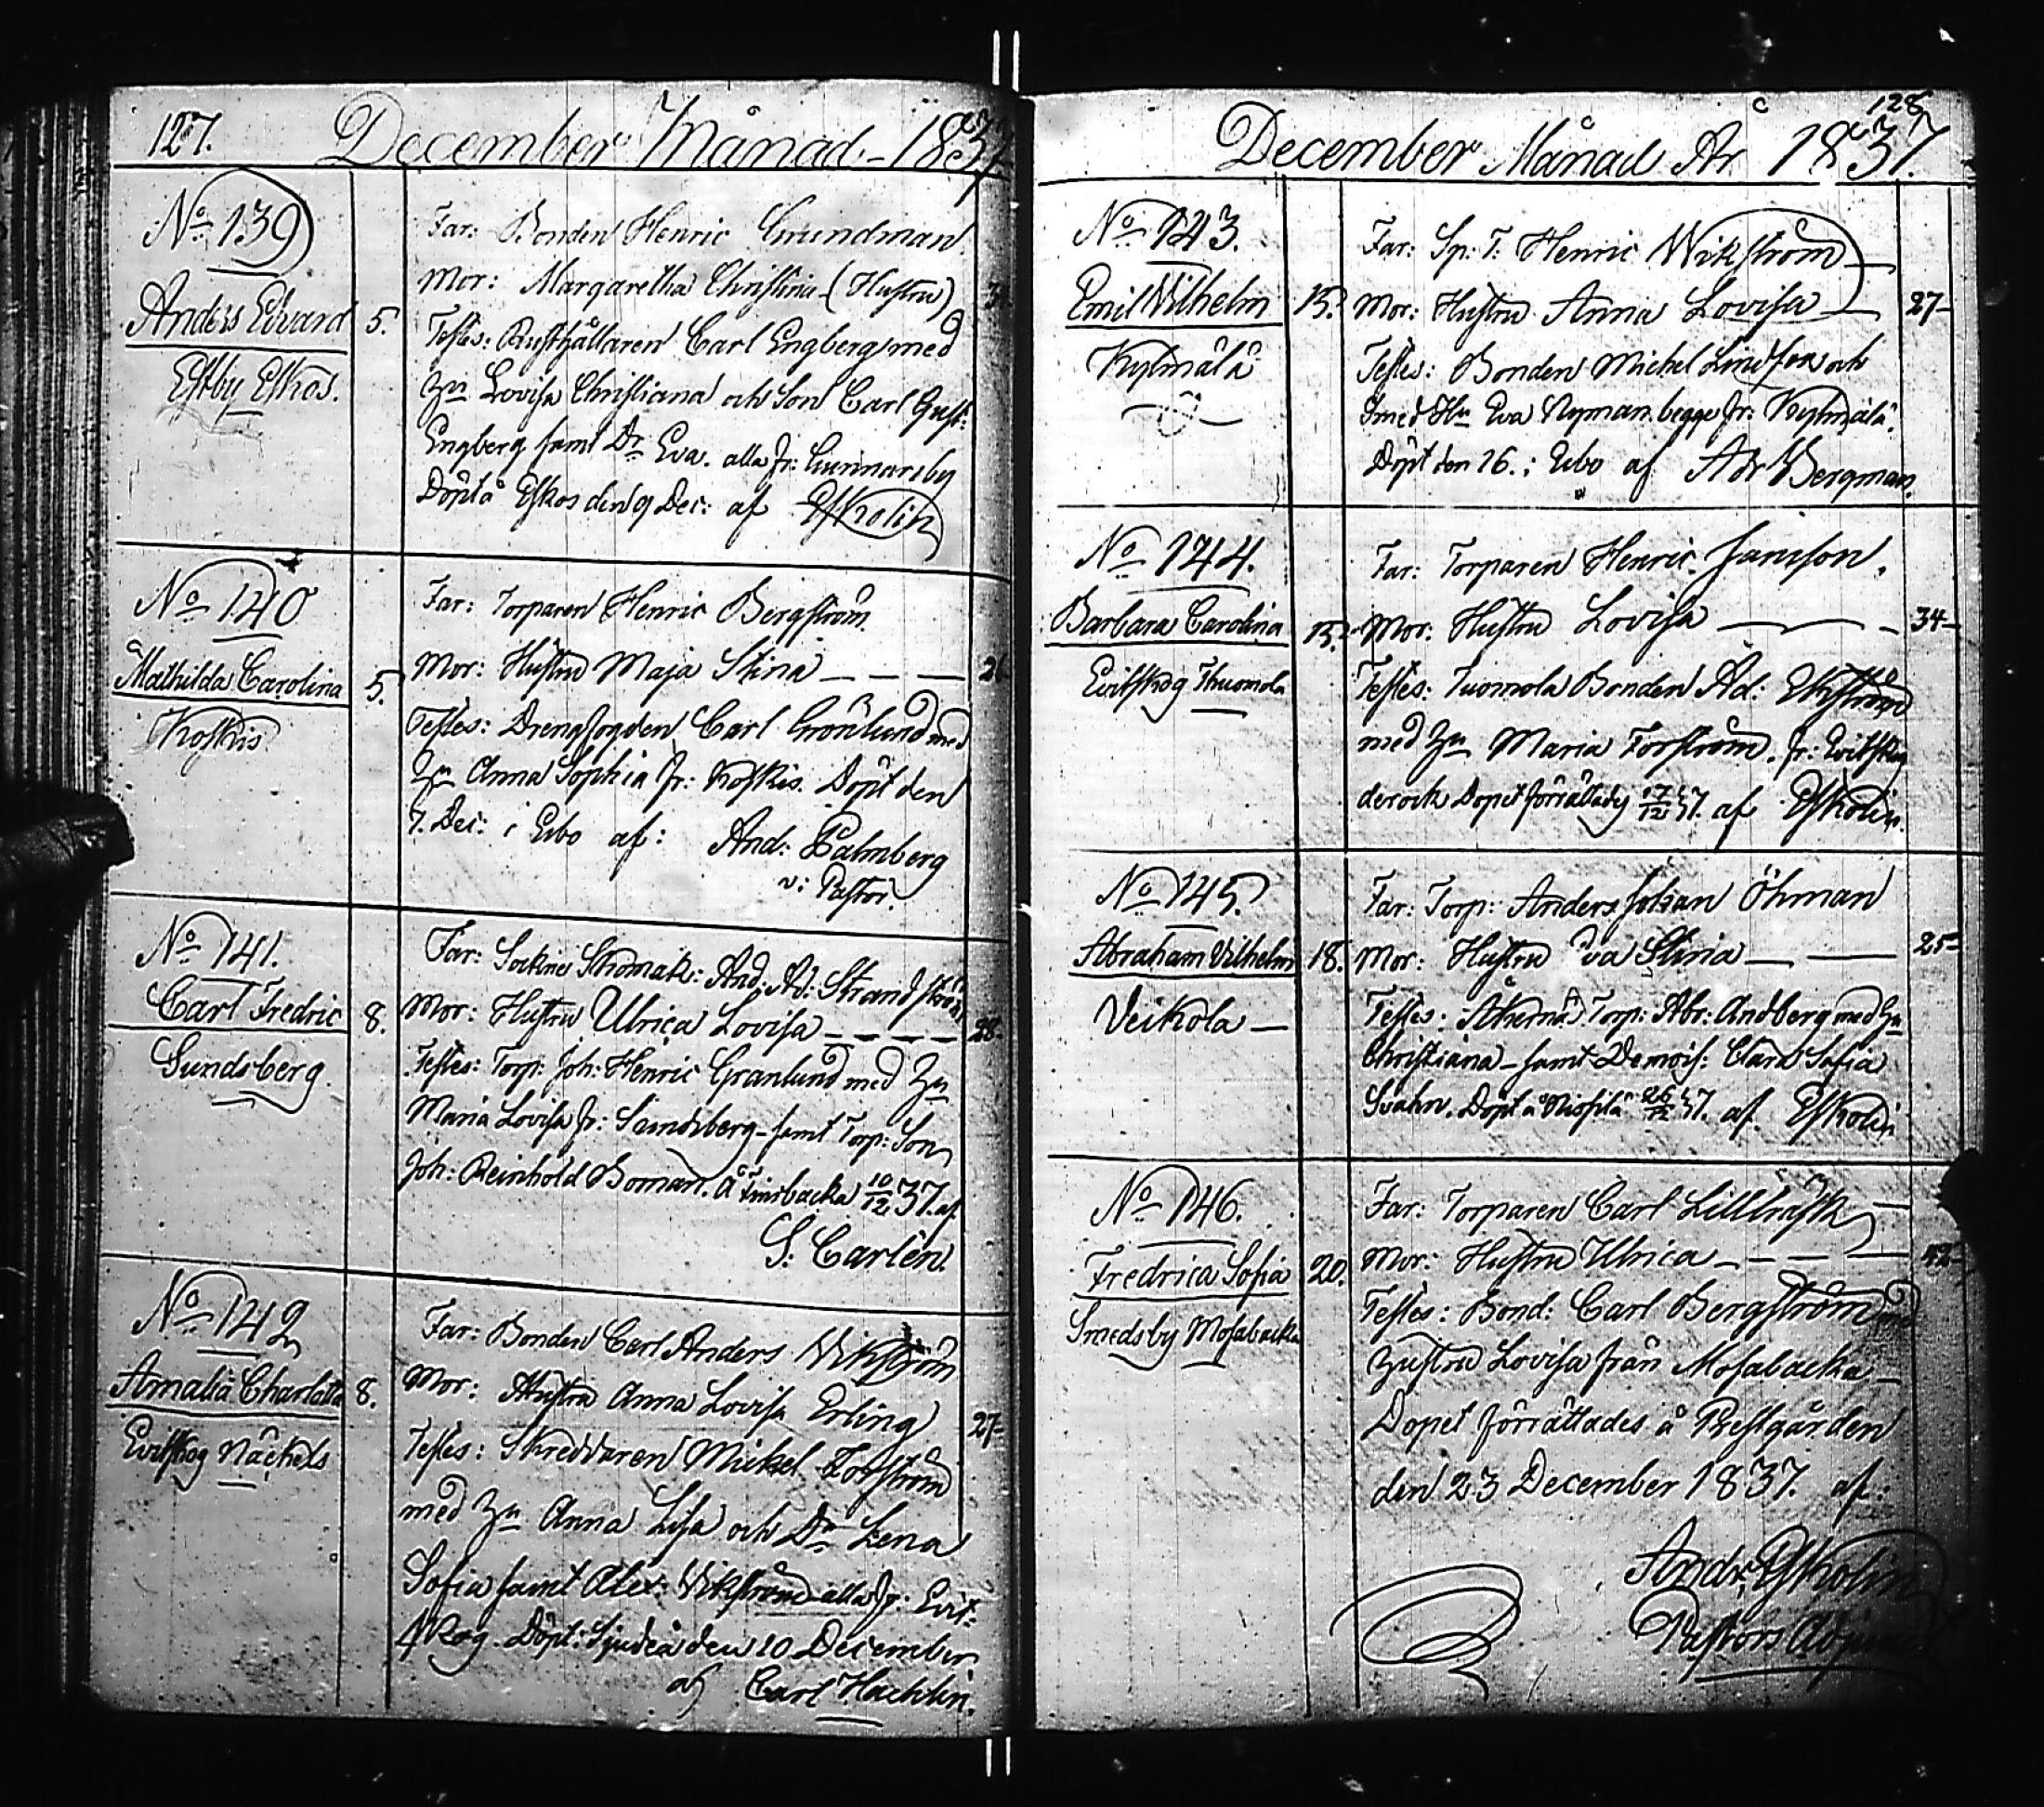 127. December Månad 1837
No 139
Anders Edvard
Estby Eskos.
5.
Far: Bonden Henric Grundman
Mor: Margaretha Christina (Hustru)
Testes: Rusthållaren Carl Engberg med
Hu Lovisa Christiana och Son Carl Gust:
Engberg samt Dr Eva. alla fr: Gunnarsby
Döpt å Eskos den 9 Dec: af Eskolin
No 140
Mathilda Carolina
Koskis
5.
Far: Torparen Henric Bergström
Mor: Hustru Maja Stina
Testes: Drengfogden Carl Grönlund med
Hu Anna Sophia fr: Koskis. Döpt den
7. Dec: i Esbo af: And: Palmberg
v: Pastor.
No 141.
Carl Fredric
Sundsberg
8.
Far: Sockne Skomak: And: Ad: Strandström
Mor: Hustru Ulrica Lovisa 28.
Testes: Torp: Joh: Henric Granlund med Hu
Maria Lovisa fr: Sundsberg samt Torp: Son
Joh: Reinhold Boman. å Finsbacka 10/12 37. af
S: Carlén.
No 142
Amalia Charlotta
Evitskog Näckels
8.
Far: Bonden Carl Anders Wikström
Mor: Hustru Anna Lovisa Erling 27
Testes: Skreddaren Mickel Forström
med Hu Anna Lisa och Dr Lena
Sofia samt Alex: Wikström alla fr: Evit-
skog. Döpt i Sjundeå den 10 December
af Carl Haehlin.
128
December Månad År 1837.
No 143.
Emil Vilhelm
Kylmälä
15.
Far: Sp: T: Henric Wikström
Mor: Hustru Anna Lovisa 27
Testes: Bonden Michel Lindfors och
med Hu Eva Nyman begge fr: Kylmälä.
Döpt den 16. i Esbo af Adr Bergman.
No 144.
Barbara Carolina
Evitskog Thuomola
15.
Far: Torparen Henric Janson.
Mor: Hustru Lovisa 34
Testes: Tuomola Bonden Ad: Ekström
med Hu Maria Forström. fr: Evitskog
der och Dopet förrättades 17/12 37. af Eskolin.
No 145.
Abraham Vilhelm
Veikola
18.
Far: Torp: Anders Johan Öhman
Mor: Hustru Eva Stina 25
Testes: Torp: Abr: Andberg med Hu
Christiana samt Demois: Clara Sofia
Svahn. Döpt å 26/12 37. af Eskolin
No 146.
Fredrica Sofia
Smedsby Mosabacka
20.
Far: Torparen Carl Lillträsk
Mor: Hustru Ulrica 42
Testes: Bond: Carl Bergström med
Hustru Lovisa från Mosabacka
Dopet förrättades å Prestgården
den 23 December 1837. af:
Andr. Eskolin
Pastors Adjunct